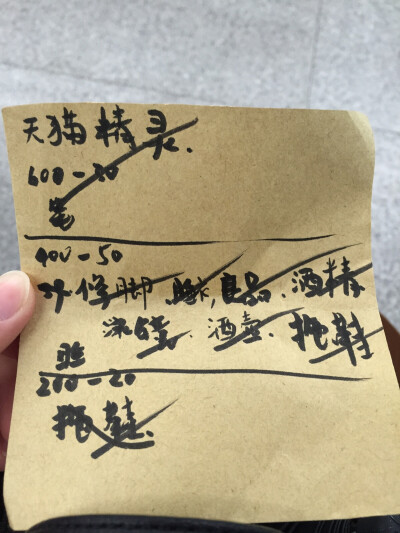 天猫精灵.
600-20
笔
400-50
修脚 良品、酒精
酒壶、拖鞋
200-20
拖鞋